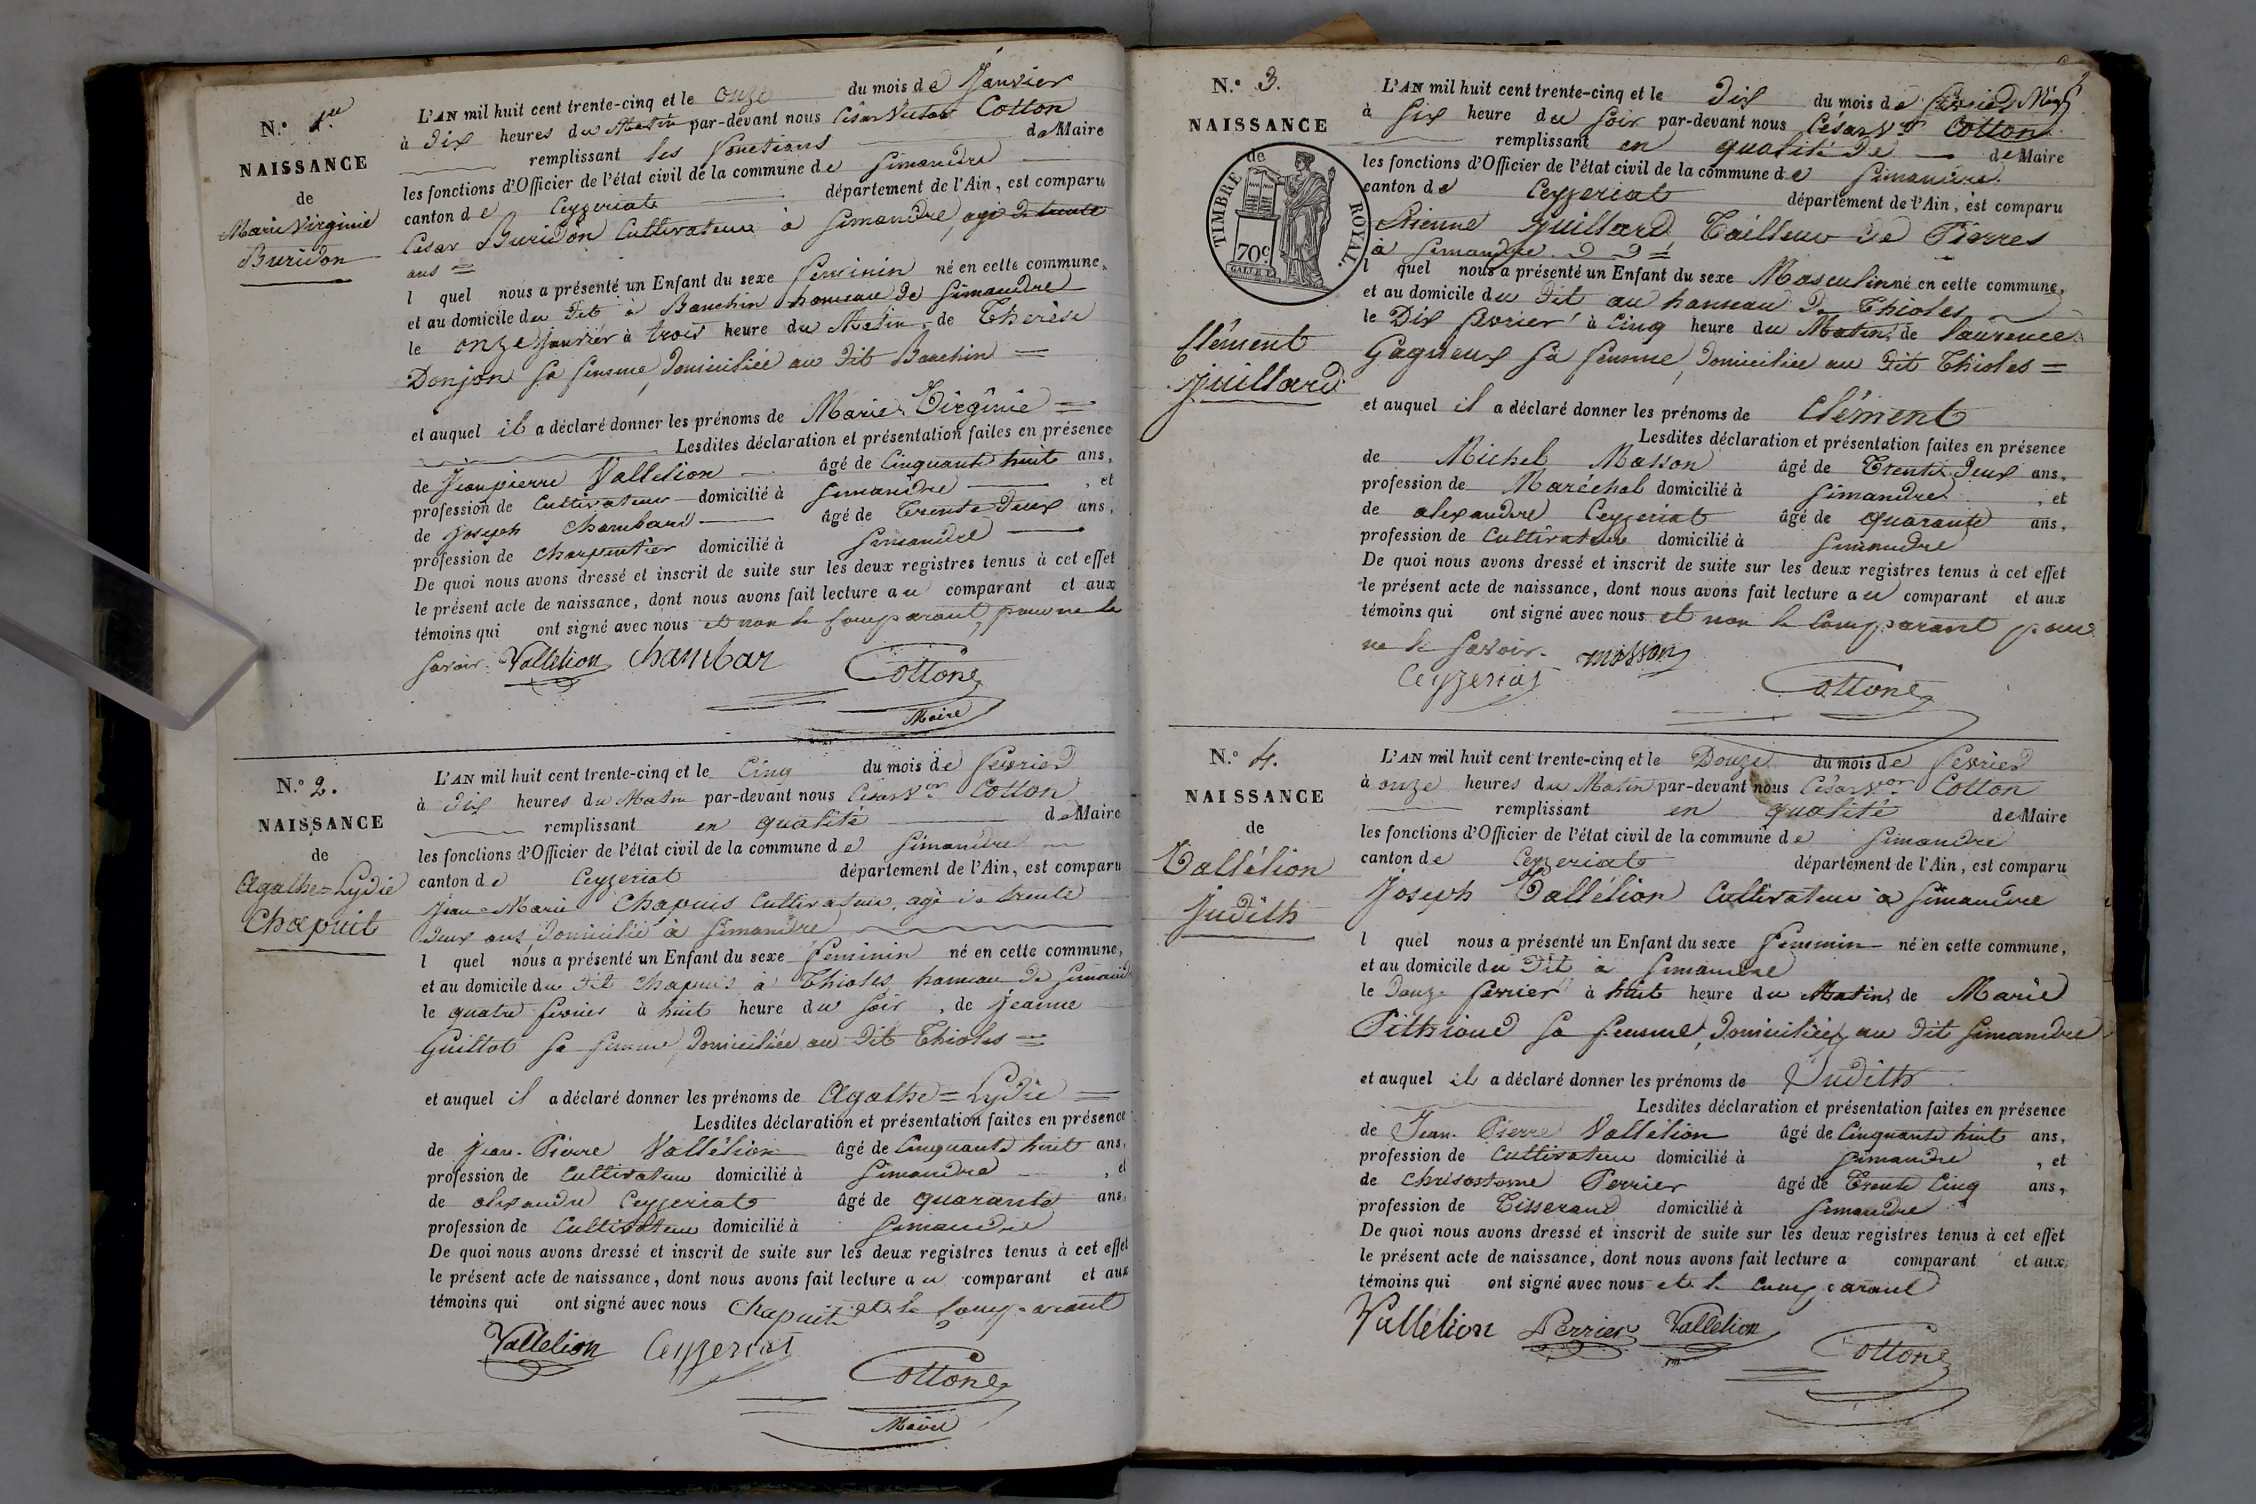 N.° 1.er
NAISSANCE
de
Marie Virginie
Buridon
L'AN mil huit cent trente-cinq et le onze du mois de Janvier
à Dix heures du Matin par-devant nous César Victor Cotton
remplissant les fonctions de Maire
les fonctions d'Officier de l'état civil de la commune de Simandre
canton de Ceyzeriat département de l'Ain, est comparu
César Buridon Cultivateur à Simandre, agé de trente
ans =
l quel nous a présenté un Enfant du sexe feminin né en cette commune,
et au domicile du dit à Banchin hameau de Simandre
le onze janvier à trois heure du Matin de Therèse
Donjon sa femme, domiciliée au dit Banchin =
et auquel il a déclaré donner les prénoms de Marie Virginie =
Lesdites déclaration et présentation faites en présence
de Jean pierre Vallelion âgé de Cinquante huit ans,
profession de Cultivateur domicilié à Simandre , et
de Joseph Chambard âgé de Trente Deux ans,
profession de charpentier domicilié à Simandre
De quoi nous avons dressé et inscrit de suite sur les deux registres tenus à cet effet
le présent acte de naissance, dont nous avons fait lecture au comparant et aux
témoins qui ont signé avec nous et non le Comparant, pour ne le
savoir. Vallelion Chambar Cotton
Maire
N.° 2.
NAISSANCE
de
Agathe=Lydie
Chapuit
L'AN mil huit cent trente-cinq et le Cinq du mois de fevrier
à Dix heures du Matin par-devant nous César V.or Cotton
remplissant en qualité de Maire
les fonctions d'Officier de l'état civil de la commune de Simandre
canton de Ceyzeriat département de l'Ain, est comparu
Jean=Marie Chapuis Cultivateur, agé de trente
deux ans, domicilié à Simandre
l quel nous a présenté un Enfant du sexe feminin né en cette commune,
et au domicile du dit Chapuis à Thioles, hameau de Simandre
le quatre fevrier à huit heure du soir , de Jeanne
Guillot sa femme, domiciliée au dit Thioles =
et auquel il a déclaré donner les prénoms de Agathe=Lydie =
Lesdites déclaration et présentation faites en présence
de Jean-Pierre Vallélion âgé de Cinquante huit ans,
profession de Cultivateur domicilié à Simandre , et
de alexandre Ceyzeriat âgé de quarante ans,
profession de Cultivateur domicilié à Simandre
De quoi nous avons dressé et inscrit de suite sur les deux registres tenus à cet effet
le présent acte de naissance, dont nous avons fait lecture au comparant et aux
témoins qui ont signé avec nous Chapuit et le Comparant
Vallelion Ceyzeriat Cotton
Maire
N.° 3.
NAISSANCE
de
TIMBRE ROYAL.
70c.
Clément
Juillard
L'AN mil huit cent trente-cinq et le Dix du mois de fevrier
à Six heure du soir par-devant nous César V.or Cotton
remplissant en qualité de de Maire
les fonctions d'Officier de l'état civil de la commune de Simandre
canton de Ceyzeriat département de l'Ain, est comparu
Etienne Juillard Tailleur de Pierres
à Simandre
l quel nous a présenté un Enfant du sexe Masculin né en cette commune,
et au domicile du dit au hameau de Thioles
le Dix fevrier à Cinq heure du Matin de Laurence
Gagneux sa femme, domiciliée au dit Thioles =
et auquel il a déclaré donner les prénoms de Clément
Lesdites déclaration et présentation faites en présence
de Michel Masson âgé de Trente Deux ans,
profession de Maréchal domicilié à Simandre , et
de alexandre Ceyzeriat âgé de quarante ans,
profession de Cultivateur domicilié à Simandre
De quoi nous avons dressé et inscrit de suite sur les deux registres tenus à cet effet
le présent acte de naissance, dont nous avons fait lecture au comparant et aux
témoins qui ont signé avec nous et non le Comparant pour
ne le savoir. masson
Ceyzeriat Cotton
N.° 4.
NAISSANCE
de
Vallélion
Judith
L'AN mil huit cent trente-cinq et le Douze du mois de fevrier
à onze heures du Matin par-devant nous César V.or Cotton
remplissant en qualité de Maire
les fonctions d'Officier de l'état civil de la commune de Simandre
canton de Ceyzeriat département de l'Ain, est comparu
Joseph Vallélion Cultivateur à Simandre
l quel nous a présenté un Enfant du sexe feminin né en cette commune,
et au domicile du dit à Simandre
le Douze fevrier à huit heure du Matin de Marie
Pithioud sa femme, domiciliée au dit Simandre
et auquel il a déclaré donner les prénoms de Judith
Lesdites déclaration et présentation faites en présence
de Jean-Pierre Vallélion âgé de Cinquante huit ans,
profession de Cultivateur domicilié à Simandre , et
de Chrisostome Perrier âgé de Trente Cinq ans,
profession de Tisserand domicilié à Simandre
De quoi nous avons dressé et inscrit de suite sur les deux registres tenus à cet effet
le présent acte de naissance, dont nous avons fait lecture a comparant et aux
témoins qui ont signé avec nous et le comparant
Vallélion Perrier Vallelion Cotton